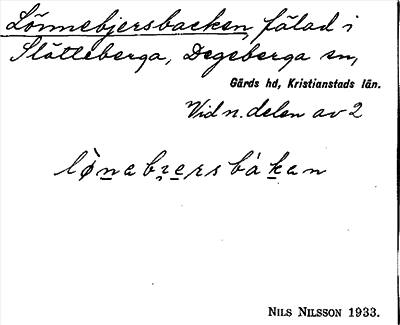 Lönnebjersbacken, fälad i
Slätteberga, Degeberga sn,
Gärds hd, Kristianstads län.
Vid n. delen av 2
lø̀nabrersbákan
NILS NILSSON 1933.